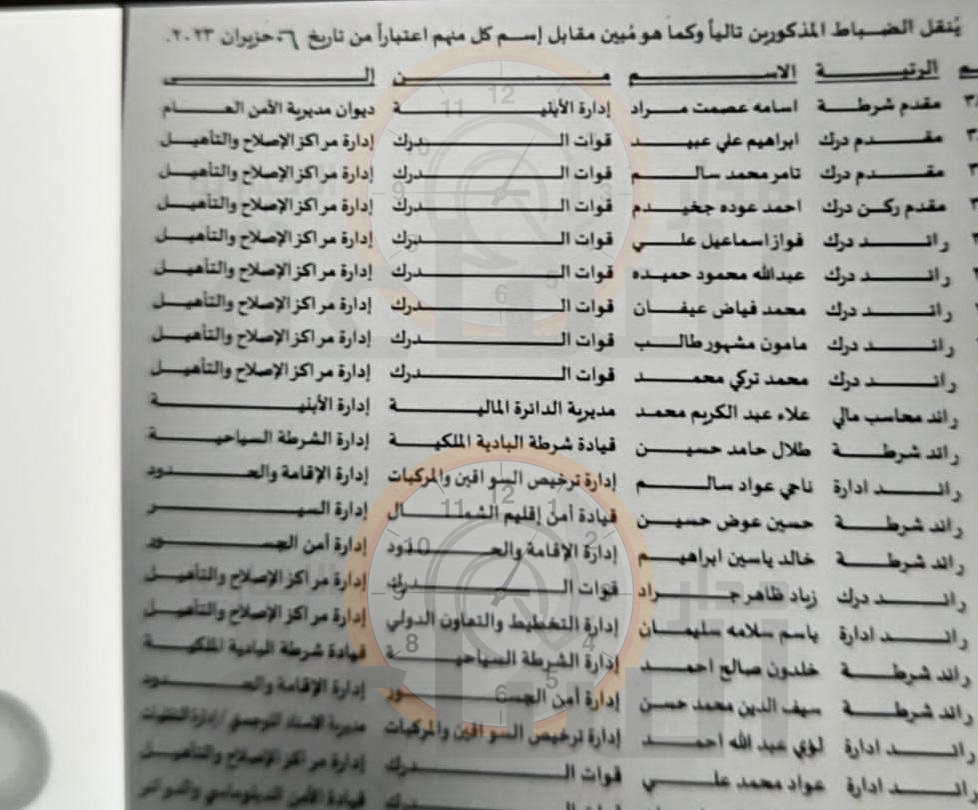 يُنقل الضباط المذكورين تالياً وكما هو مُبين مقابل إسم كل منهم اعتباراً من تاريخ ٠٦ حزيران ٢٠٢٣.
م الرتبة الاسم من إلى
مقدم شرطة اسامه عصمت مراد إدارة الأبنية ديوان مديرية الأمن العام
مقدم درك ابراهيم علي عبيد قوات الدرك إدارة مراكز الإصلاح والتأهيل
مقدم درك تامر محمد سالم قوات الدرك إدارة مراكز الإصلاح والتأهيل
مقدم ركن درك احمد عوده جخيدم قوات الدرك إدارة مراكز الإصلاح والتأهيل
رائد درك فواز اسماعيل علي قوات الدرك إدارة مراكز الإصلاح والتأهيل
رائد درك عبدالله محمود حميده قوات الدرك إدارة مراكز الإصلاح والتأهيل
رائد درك محمد فياض عيفان قوات الدرك إدارة مراكز الإصلاح والتأهيل
رائد درك مامون مشهور طالب قوات الدرك إدارة مراكز الإصلاح والتأهيل
رائد درك محمد تركي محمد قوات الدرك إدارة مراكز الإصلاح والتأهيل
رائد محاسب مالي علاء عبد الكريم محمد مديرية الدائرة المالية إدارة الأبنية
رائد شرطة طلال حامد حسين قيادة شرطة البادية الملكية إدارة الشرطة السياحية
رائد ادارة ناجي عواد سالم إدارة ترخيص السواقين والمركبات إدارة الإقامة والحدود
رائد شرطة حسين عوض حسين قيادة أمن إقليم الشمال إدارة السير
رائد شرطة خالد ياسين ابراهيم إدارة الإقامة والحدود إدارة أمن الجسور
رائد درك زياد ظاهر جراد قوات الدرك إدارة مراكز الإصلاح والتأهيل
رائد ادارة باسم سلامه سليمان إدارة التخطيط والتعاون الدولي إدارة مراكز الإصلاح والتأهيل
رائد شرطة خلدون صالح احمد إدارة الشرطة السياحية قيادة شرطة البادية الملكية
رائد شرطة سيف الدين محمد حسن إدارة أمن الجسور إدارة الإقامة والحدود
رائد ادارة لؤي عبد الله احمد إدارة ترخيص السواقين والمركبات مديرية الاسناد اللوجستي /إدارة
رائد ادارة عواد محمد علي قوات الدرك إدارة مراكز الإصلاح والتأهيل
الدرك قيادة الأمن الدبلوماسي والدوائر